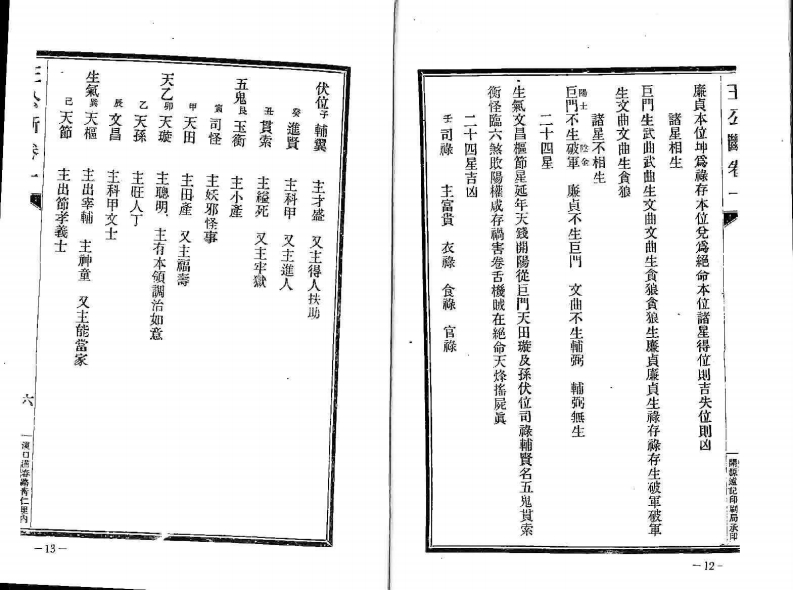 王公斷卷一
廉貞本位坤為祿存本位兌為絕命本位諸星得位則吉失位則凶
諸星相生
巨門生武曲武曲生文曲文曲生貪狼貪狼生廉貞廉貞生祿存祿存生破軍破軍
生文曲文曲生貪狼
諸星不相生
巨門陽土不生破軍陰金 廉貞不生巨門 文曲不生輔弼 輔弼無生
二十四星
生氣文昌樞節星延年天錢開陽從巨門天田璇及孫伏位司祿輔賢名五鬼貫索
衡怪臨六煞敗陽權咸存禍害卷舌機賊在絕命天烽搖屍眞
二十四星吉凶
壬 司祿 主富貴 衣祿 食祿 官祿
開源遠記印刷局承印
—12—
伏位子 輔翼 主才盛 又主得人扶助
癸 進賢 主科甲 又主進人
丑 貫索 主縊死 又主牢獄
五鬼艮 玉衡 主小產
寅 司怪 主妖邪怪事
甲 天田 主田產 又主福壽
天乙卯 天璇 主聰明、主有本領調治如意
乙 天孫 主旺人丁
辰 文昌 主科甲文士
生氣巽 天樞 主出宰輔 主神童 又主能當家
巳 天節 主出節孝義士
王公斷卷一
六
—13—